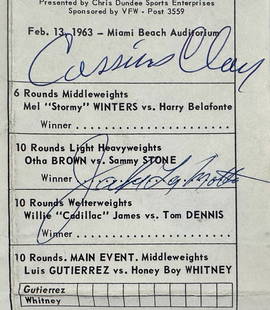 Presented by Chris Dundee Sports Enterprises
Sponsored by VFW - Post 3559
Feb. 13, 1963 – Miami Beach Auditorium
Cassius Clay
6 Rounds Middleweights
Mel "Stormy" WINTERS vs. Harry Belafonte
Winner
10 Rounds Light Heavyweights
Otha BROWN vs. Sammy STONE
Winner
Jake La Motta
10 Rounds Welterweights
Willie "Cadillac" James vs. Tom DENNIS
Winner
10 Rounds. MAIN EVENT. Middleweights
Luis GUTIERREZ vs. Honey Boy WHITNEY
Gutierrez
Whitney